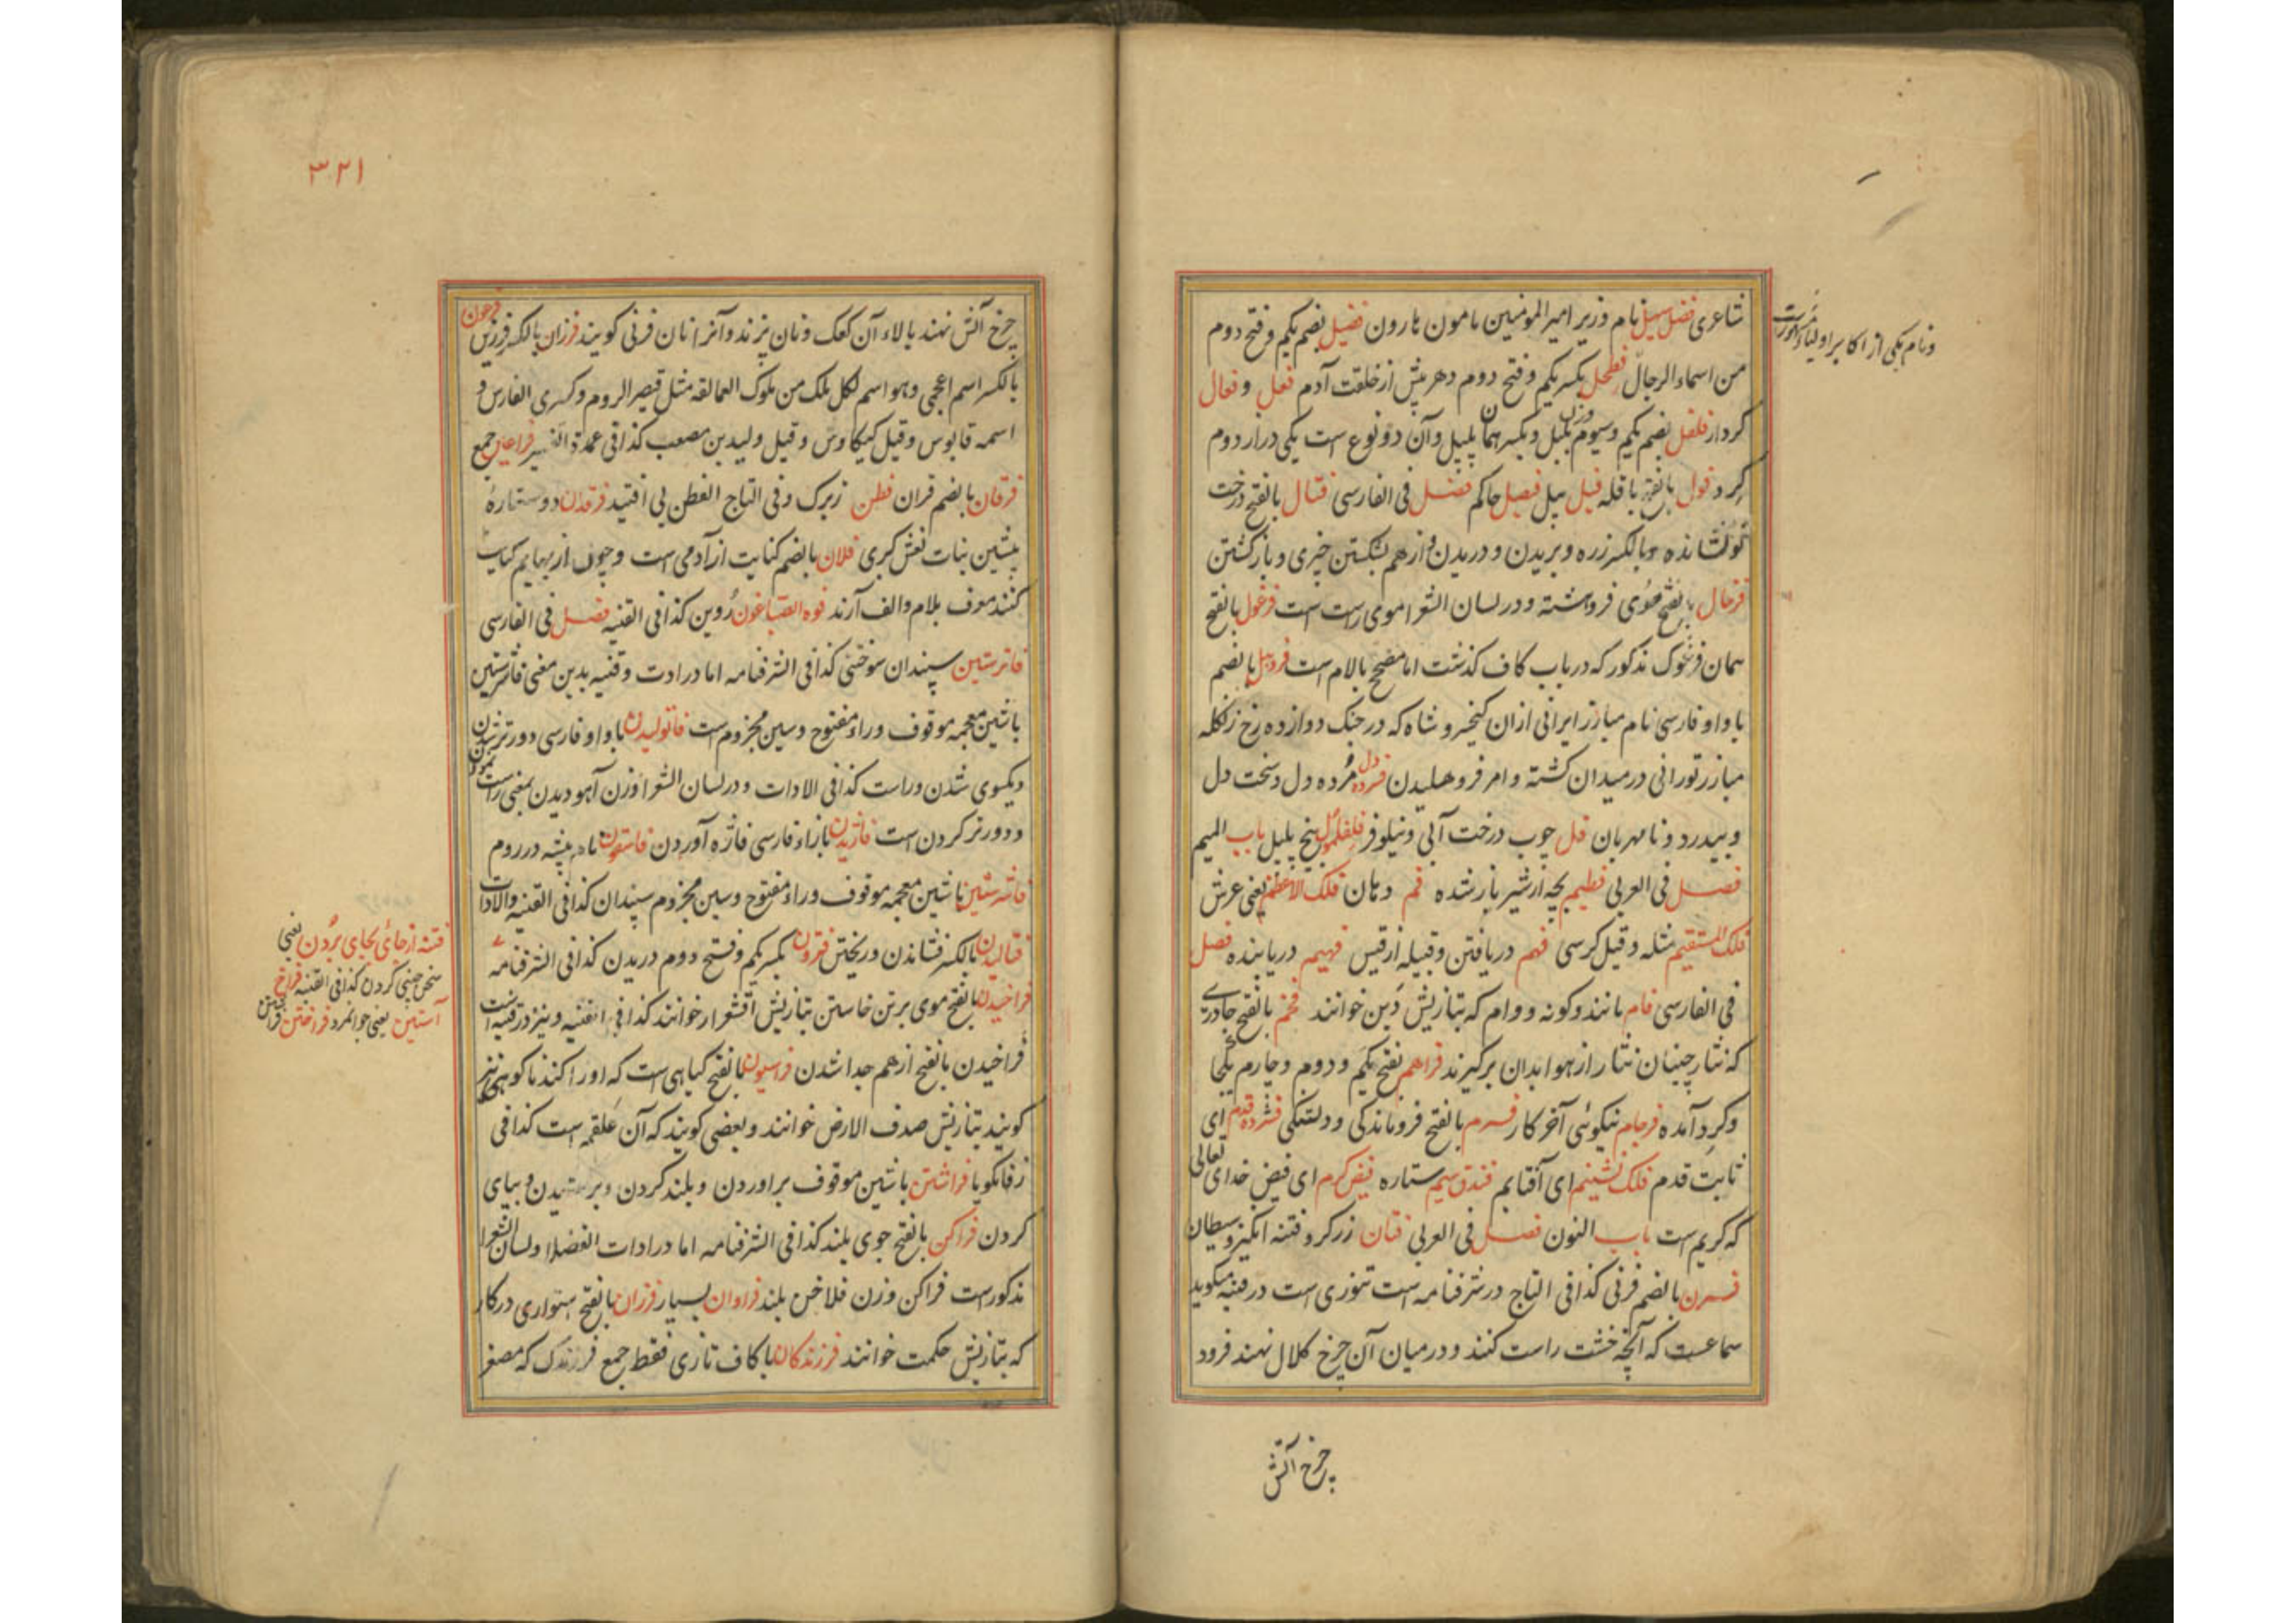 شاعری فضل سهیل نام وزیر امیر المومنین مامون هارون فضیل بضم یکم و فتح دوم
ونام یکی از اکابر اولیاء
من اسماء الرجال فطحل بکسر یکم وفتح دوم دهر پیش از خلقت آدم فعل وفعال
کردار فلفل بضم یکم وسیوم بلبل وبکسرهما پلپل وآن دو نوع است یکی دراز دوم
کرد فول بالفتح باقله فیل پیل فیصل حاکم فصل فی الفارسی فتال بالفتح درخت
نونشانده وبالکسر زره وبریدن ودریدن واز هم شکستن چیزی وبازکشتن
فرخال بالفتح موی فروهشته ودر لسان الشعرا موی راست است فرغول بالفتح
همان فرغوک مذکور که در باب کاف گذشت اما مصحح بالام است بالضم
با واو فارسی نام مبارز ایرانی ازان کیخسرو شاه که در جنک دوازده رخ زنکله
مبارز تورانی در میدان کشته وامر فروهلیدن فسرده دل مرده دل وسخت دل
وبیدرد ونامهربان فل چوب درخت آبی ونیلوفر بیخ پلپل باب المیم
فصل فی العربی فطیم بچه از شیر باز شده فم دهان فلک الاعظم یعنی عرش
فلک المستقیم مثله وقیل کرسی فهم دریافتن وقبیله از قیس فهیم دریابنده فصل
فی الفارسی فام مانند وکونه ووام که بتازیش دین خوانند فخم بالفتح چادری
که نثارچینان نثار از هوا بدان برکیرند فراهم بفتح یکم ودوم وچارم یکجا
وکرد آمده فرجام نیکوئی آخر کار فرم بالفتح فروماندکی ودلتنکی فشرده قدم ای
ثابت قدم فلک نشینم ای آفتابم فندق سیم ستاره فیض کرم ای فیض خدای تعالی
که کریم است باب النون فصل فی العربی فتان زرکر وفتنه انکیز وشیطان
فرن بالضم فرنی کذا فی التاج در شرفنامه است تنوری است در قنیه میکوید
سماعست که آنچه خشت راست کنند ودر میان آن چرخ کلال نهند فرود
چرخ آتش
۳۲۱
چرخ آتش نهند بالاء آن کعک ونان پزند وآنرا نان فرنی کویند فرزان بالکسر فرزین فرعون
بالکسر اسم اعجمی وهو اسم لکل ملک من ملوک العمالقه مثل قیصر الروم وکسری الفارس و
اسمه قابوس وقیل کیکاوس وقیل ولید بن مصعب کذا فی عمدة التفسیر فراعین جمع
فرقان بالضم قران فطن زیرک وفی التاج الفطن فرقدان دو ستارهٔ
پیشین بنات نعش کبری فلان بالضم کنایت از آدمی است وچون از بهایم کنایت
کنند معرف بلام والف آرند فوه الصباغون روین کذا فی القنیه فصل فی الفارسی
فاترستین سپندان سوختنی کذا فی الشرفنامه اما در ادات وقنیه بدین معنی فاشرستین
باشین معجمه موقوف وراء مفتوح وسین مجزوم است فاتولیدن باواو فارسی دورتر شدن
ویکسوی شدن وراست کذا فی الادات ودر لسان الشعرا وزن آهو دیدن بمعنی راست نمودن
ودورتر کردن است فاژیدن بازاء فارسی فاژه آوردن فاسقون نام بیشه در روم
فاشرشین باشین معجمه موقوف وراء مفتوح وسین مجزوم سپندان کذا فی القنیه والادات
فتالیدن بالکسر فشاندن وریختن فتردن بکسر یکم وفتح دوم دریدن کذا فی الشرفنامه
فراخیدن بالفتح موی برتن خاستن بتازیش اقشعرار خوانند کذا فی القنیه ونیز در قنیه است
فراخیدن بالفتح از هم جدا شدن فراسیون بالفتح کیاهی است که اورا کندنا کوهی نیز
کویند بتازیش صدف الارض خوانند وبعضی کویند که آن علقمه است کذا فی
زفانکویا فراشتن باشین موقوف براوردن وبلند کردن وبرکشیدن وبپای
کردن فراکن بالفتح جوی بلند کذا فی الشرفنامه اما در ادات الفضلا ولسان الشعرا
مذکورست فراکن وزن فلاخن بلند فراوان بسیار فرزان بالفتح استواری در کار
که بتازیش حکمت خوانند فرزندکان باکاف تازی فقط جمع فرزندک که مصغر
فتنه از جای بجای بردن یعنی
سخن چینی کردن کذا فی القنیه فراخ
آستین یعنی جوانمرد فراختن